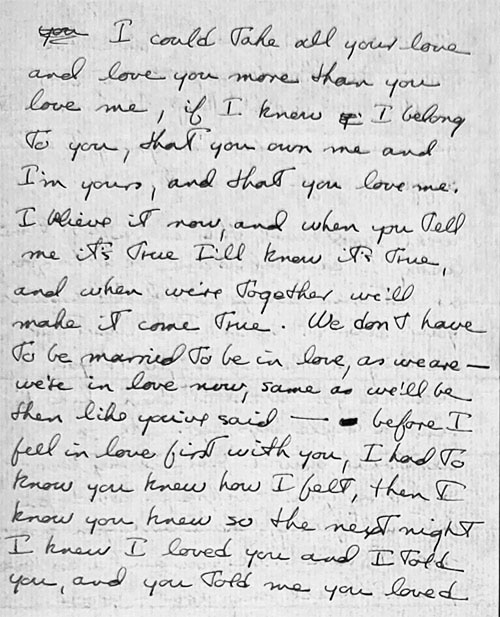 you I could take all your love
and love you more than you
love me, if I knew I belong
to you, that you own me and
I'm yours, and that you love me.
I believe it now, and when you tell
me it's true I'll know it's true,
and when we're together we'll
make it come true. We don't have
to be married to be in love, as we are —
we're in love now, same as we'll be
then like you've said — before I
fell in love first with you, I had to
know you knew how I felt, then I
know you knew so the next night
I knew I loved you and I told
you, and you told me you loved